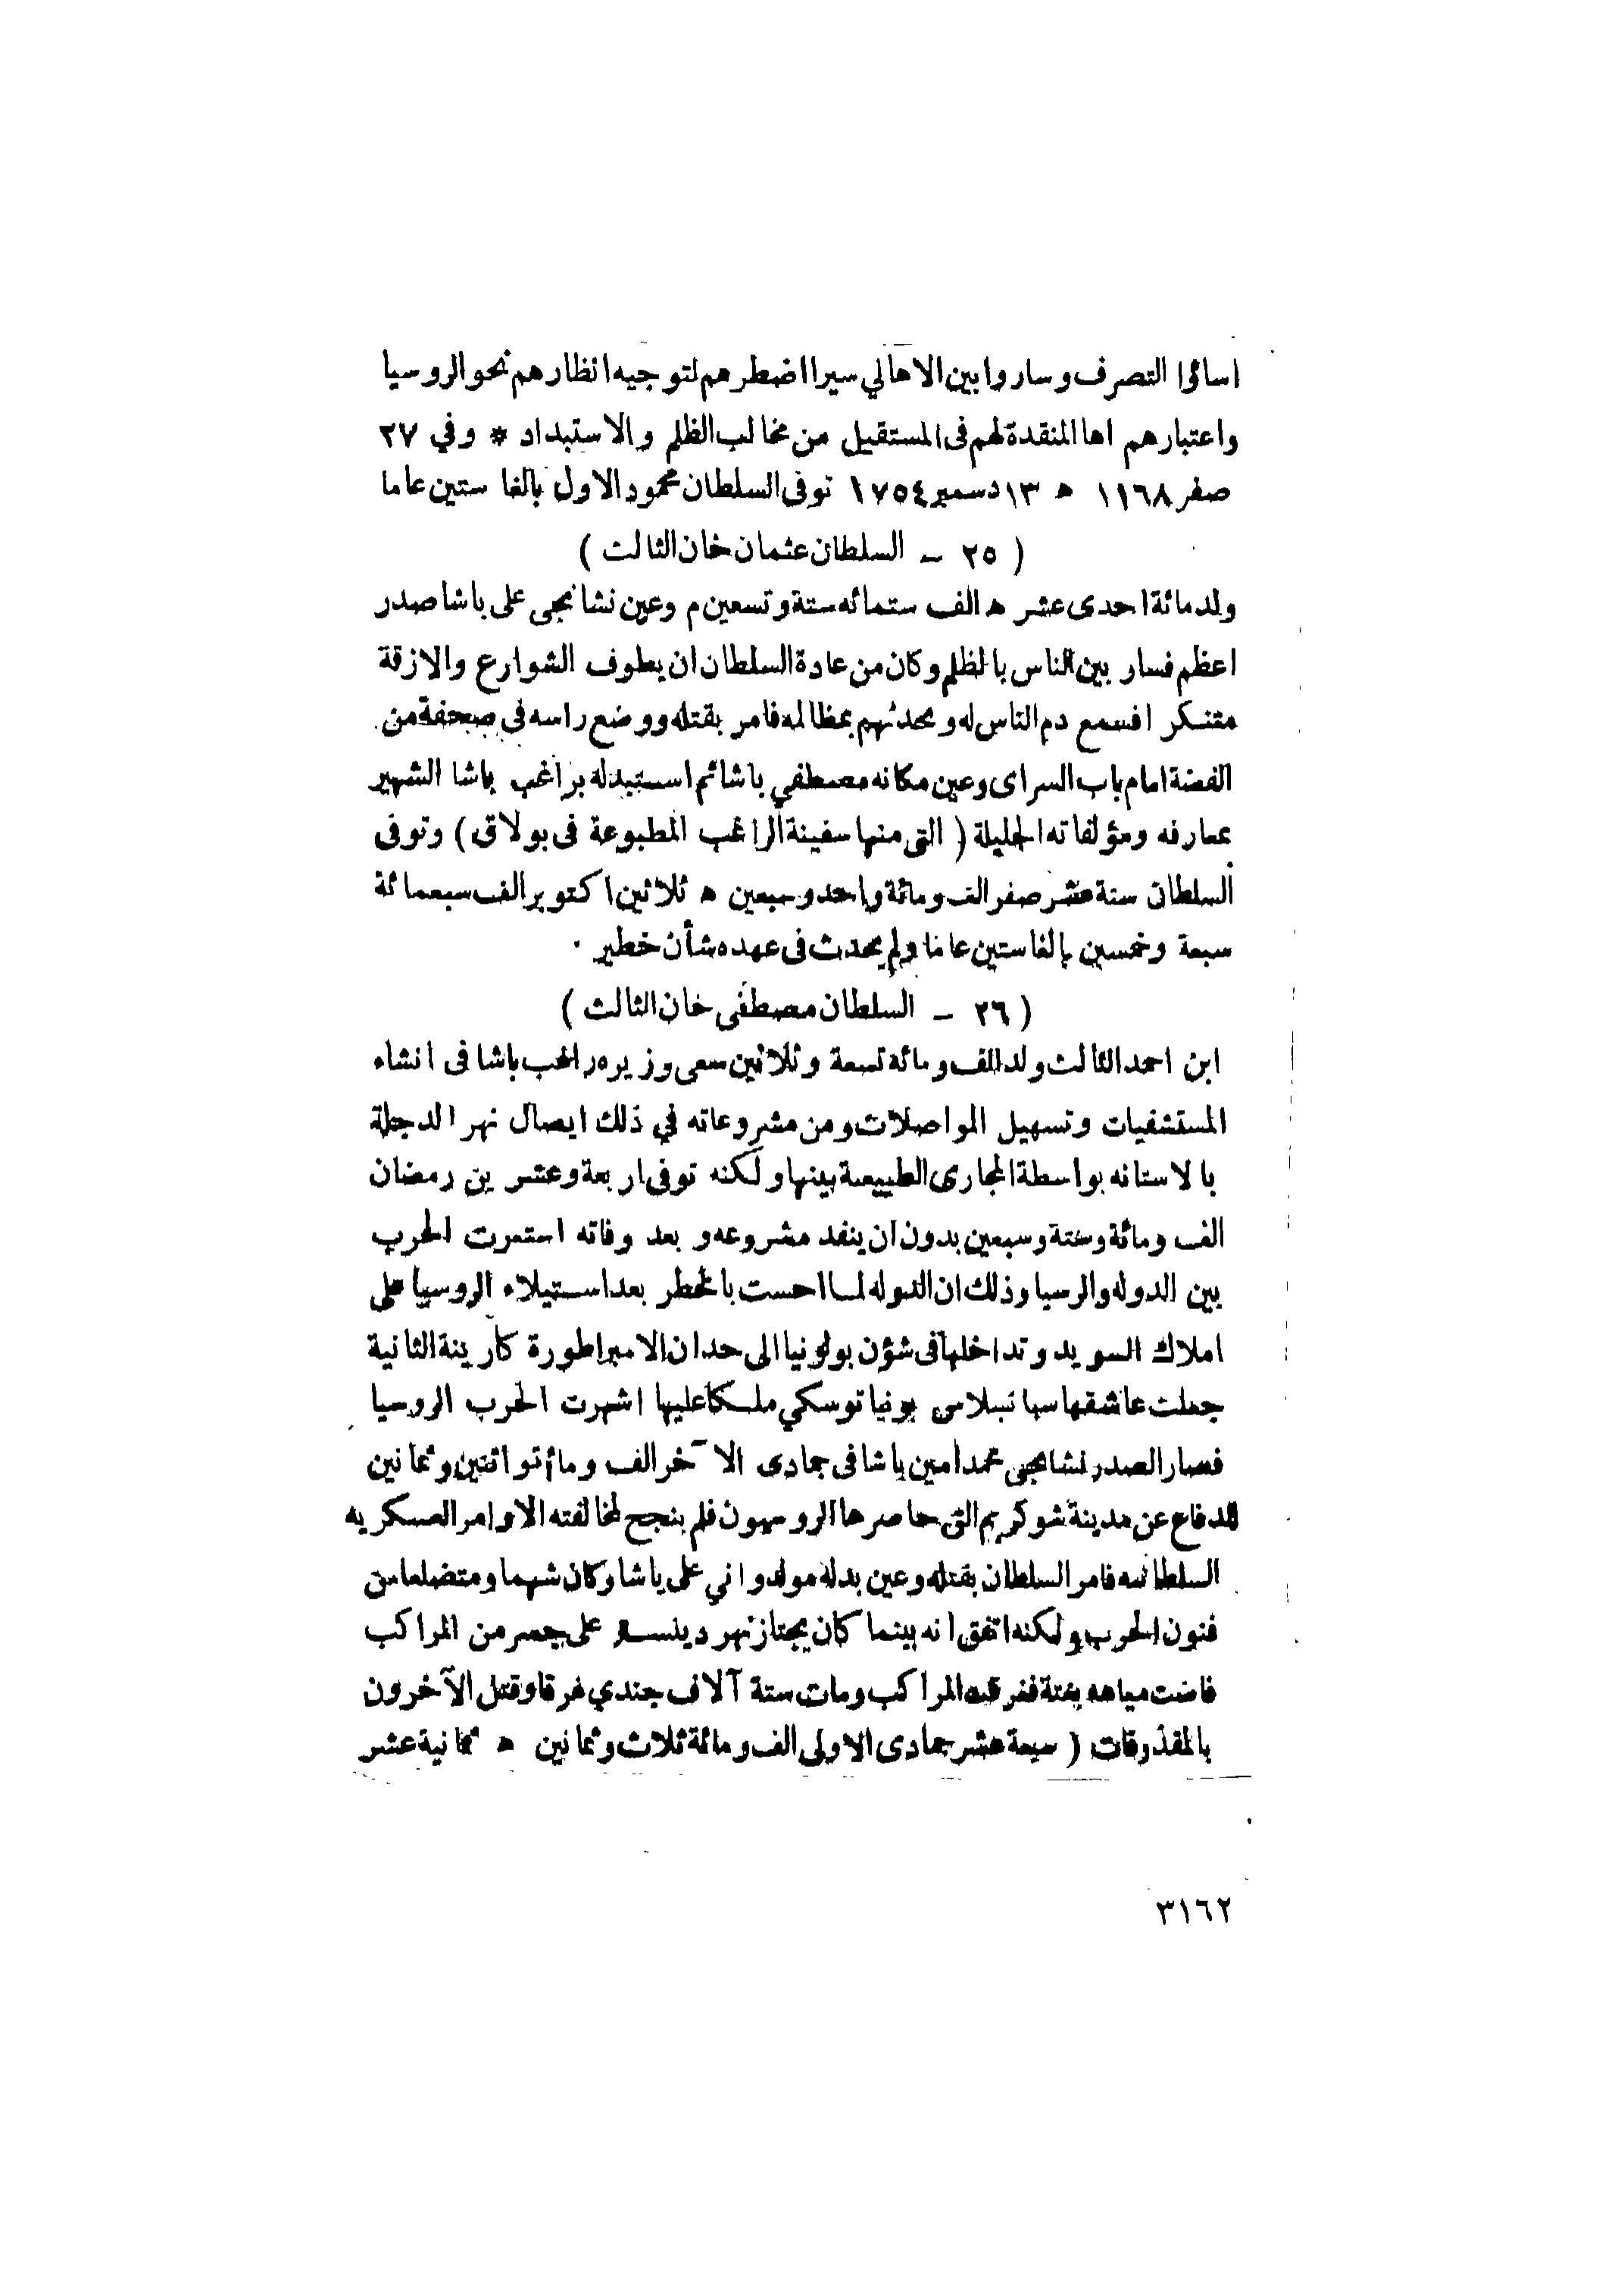 اسائوا التصرف وساروا بين الاهالي سيرا اضطرهم لتوجيه انظارهم نحو الروسيا
واعتبارهم اها المنقدة لهم فى المستقيل من مخالب الظلم والاستبداد * وفي ٢٧
صفر ١١٦٨ ه ١٣ دسمبر ١٧٥٤ توفى السلطان محمود الاول بالغا ستين عاما
( ٢٥ – السلطان عثمان خان الثالث )
ولد مائة احدى عشر ه الف ستمائه ستة وتسعين م وعين نشانجى على باشا صدر
اعظم فسار بين الناس بالظلم وكان من عادة السلطان ان يطوف الشوارع والازقة
متنكر افسمع دم الناس له ويحدثهم بمظالمه فامر بقتله ووضع راسه فى صحفة من
الفضة امام باب السراى وعين مكانه مصطفي باشا ثم استبدله براغب باشا الشهير
بمعارفه ومؤلفاته الجليلة ( التى منها سفينة الراغب المطبوعة فى بولاق ) وتوفى
السلطان سنة عشر صفر الف ومائة واحد وسبعين ه ثلاثين اكتوبر الف سبعمائة
سبعة وخمسين بالغا ستين عاما ولم يحدث فى عهده شأن خطير .
( ٢٦ – السلطان مصطفى خان الثالث )
ابن احمد الثالث ولد الف ومائه تسعة وثلاثين سعى وزيره راغب باشا فى انشاء
المستشفيات وتسهيل المواصلات ومن مشروعاته في ذلك ايصال نهر الدجلة
بالاستانه بواسطة المجارى الطبيعية بينها ولكنه توفى اربعة وعشرين رمضان
الف ومائة وستة وسبعين بدون ان ينفد مشروعه وبعد وفاته استمرت الحرب
بين الدوله والرسيا وذلك ان الدوله لما احست بالخطر بعد استيلاء الروسيا على
املاك السويد وتداخلها فى شؤن بولونيا الى حد ان الامبراطورة كارينة الثانية
جعلت عاشقها سبانسلاس بونياتوسكي ملكا عليها اشهرت الحرب الروسيا
فصار الصدر نشانجى محمد امين باشا فى جمادى الآخر الف ومائة واثنتين وثمانين
للدفاع عن مدينة شوكزيم التى حاصرها الروسيون فلم ينجح لمخالفته الاوامر العسكريه
السلطانيه فامر السلطان بقتله وعين بدله مولدواني على باشا وكان شهما ومتضلعا من
فنون الحرب ولكنه اتفق انه بينما كان يجتاز نهر دينستر على جسر من المراكب
فاضت مياهه بغتة ففرقت المراكب ومات ستة آلاف جندي غرقا وقتل الآخرون
بالمقذوقات ( سبعة عشر جمادى الاولى الف ومائة ثلاث وثمانين ه ثمانية عشر
٣١٦٢